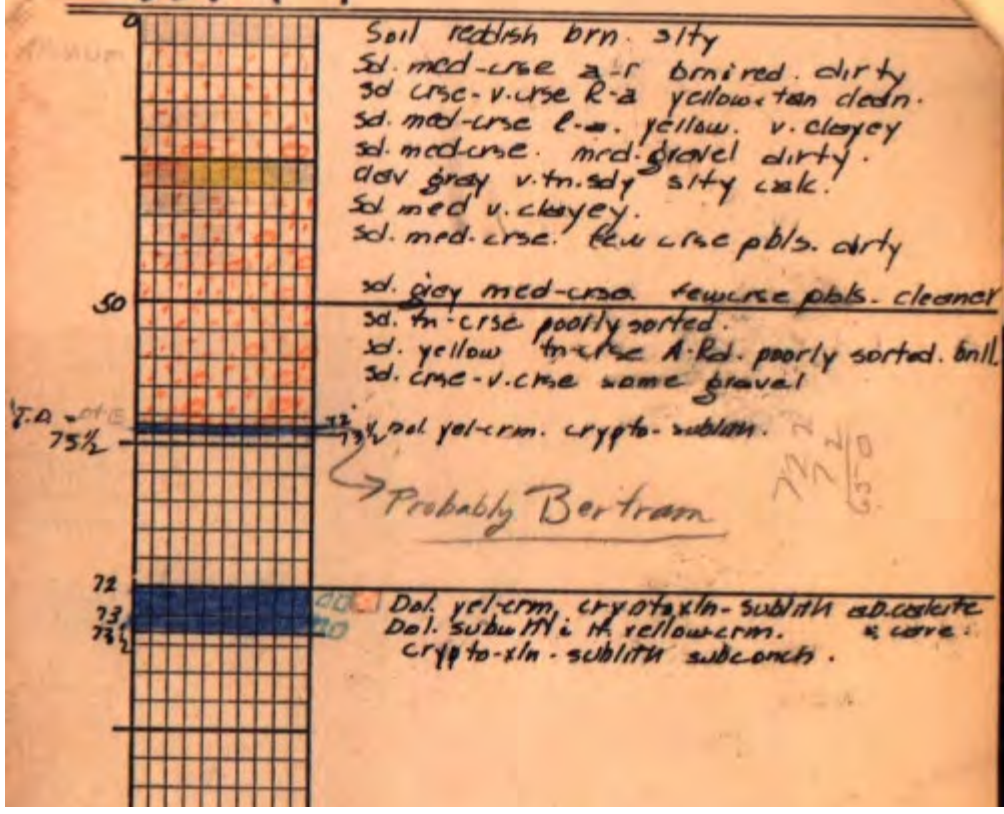 0
Soil reddish brn. slty
Sd. med-crse a-r brn+red. dirty
sd crse-v.crse R-a yellow+tan clean.
sd. med-crse yellow. v. clayey
sd. med-crse. med. gravel dirty.
clay gray v.fn.sdy slty calc.
Sd med v. clayey.
sd. med-crse. few crse pbls. dirty
sd. grey med-crse. few crse pbls. cleaner
50
sd. fn-crse poorly sorted.
sd. yellow fn-crse A-Rd. poorly sorted.
sd. crse-v.crse some gravel
T.D.
75½
72
73½
Dol. yel-crm. crypto-sublith.
Probably Bertram
72
Dol. yel-crm, crypto-xln-sublith
73
Dol. yellow-crm.
73½
crypto-xln-sublith subconch.